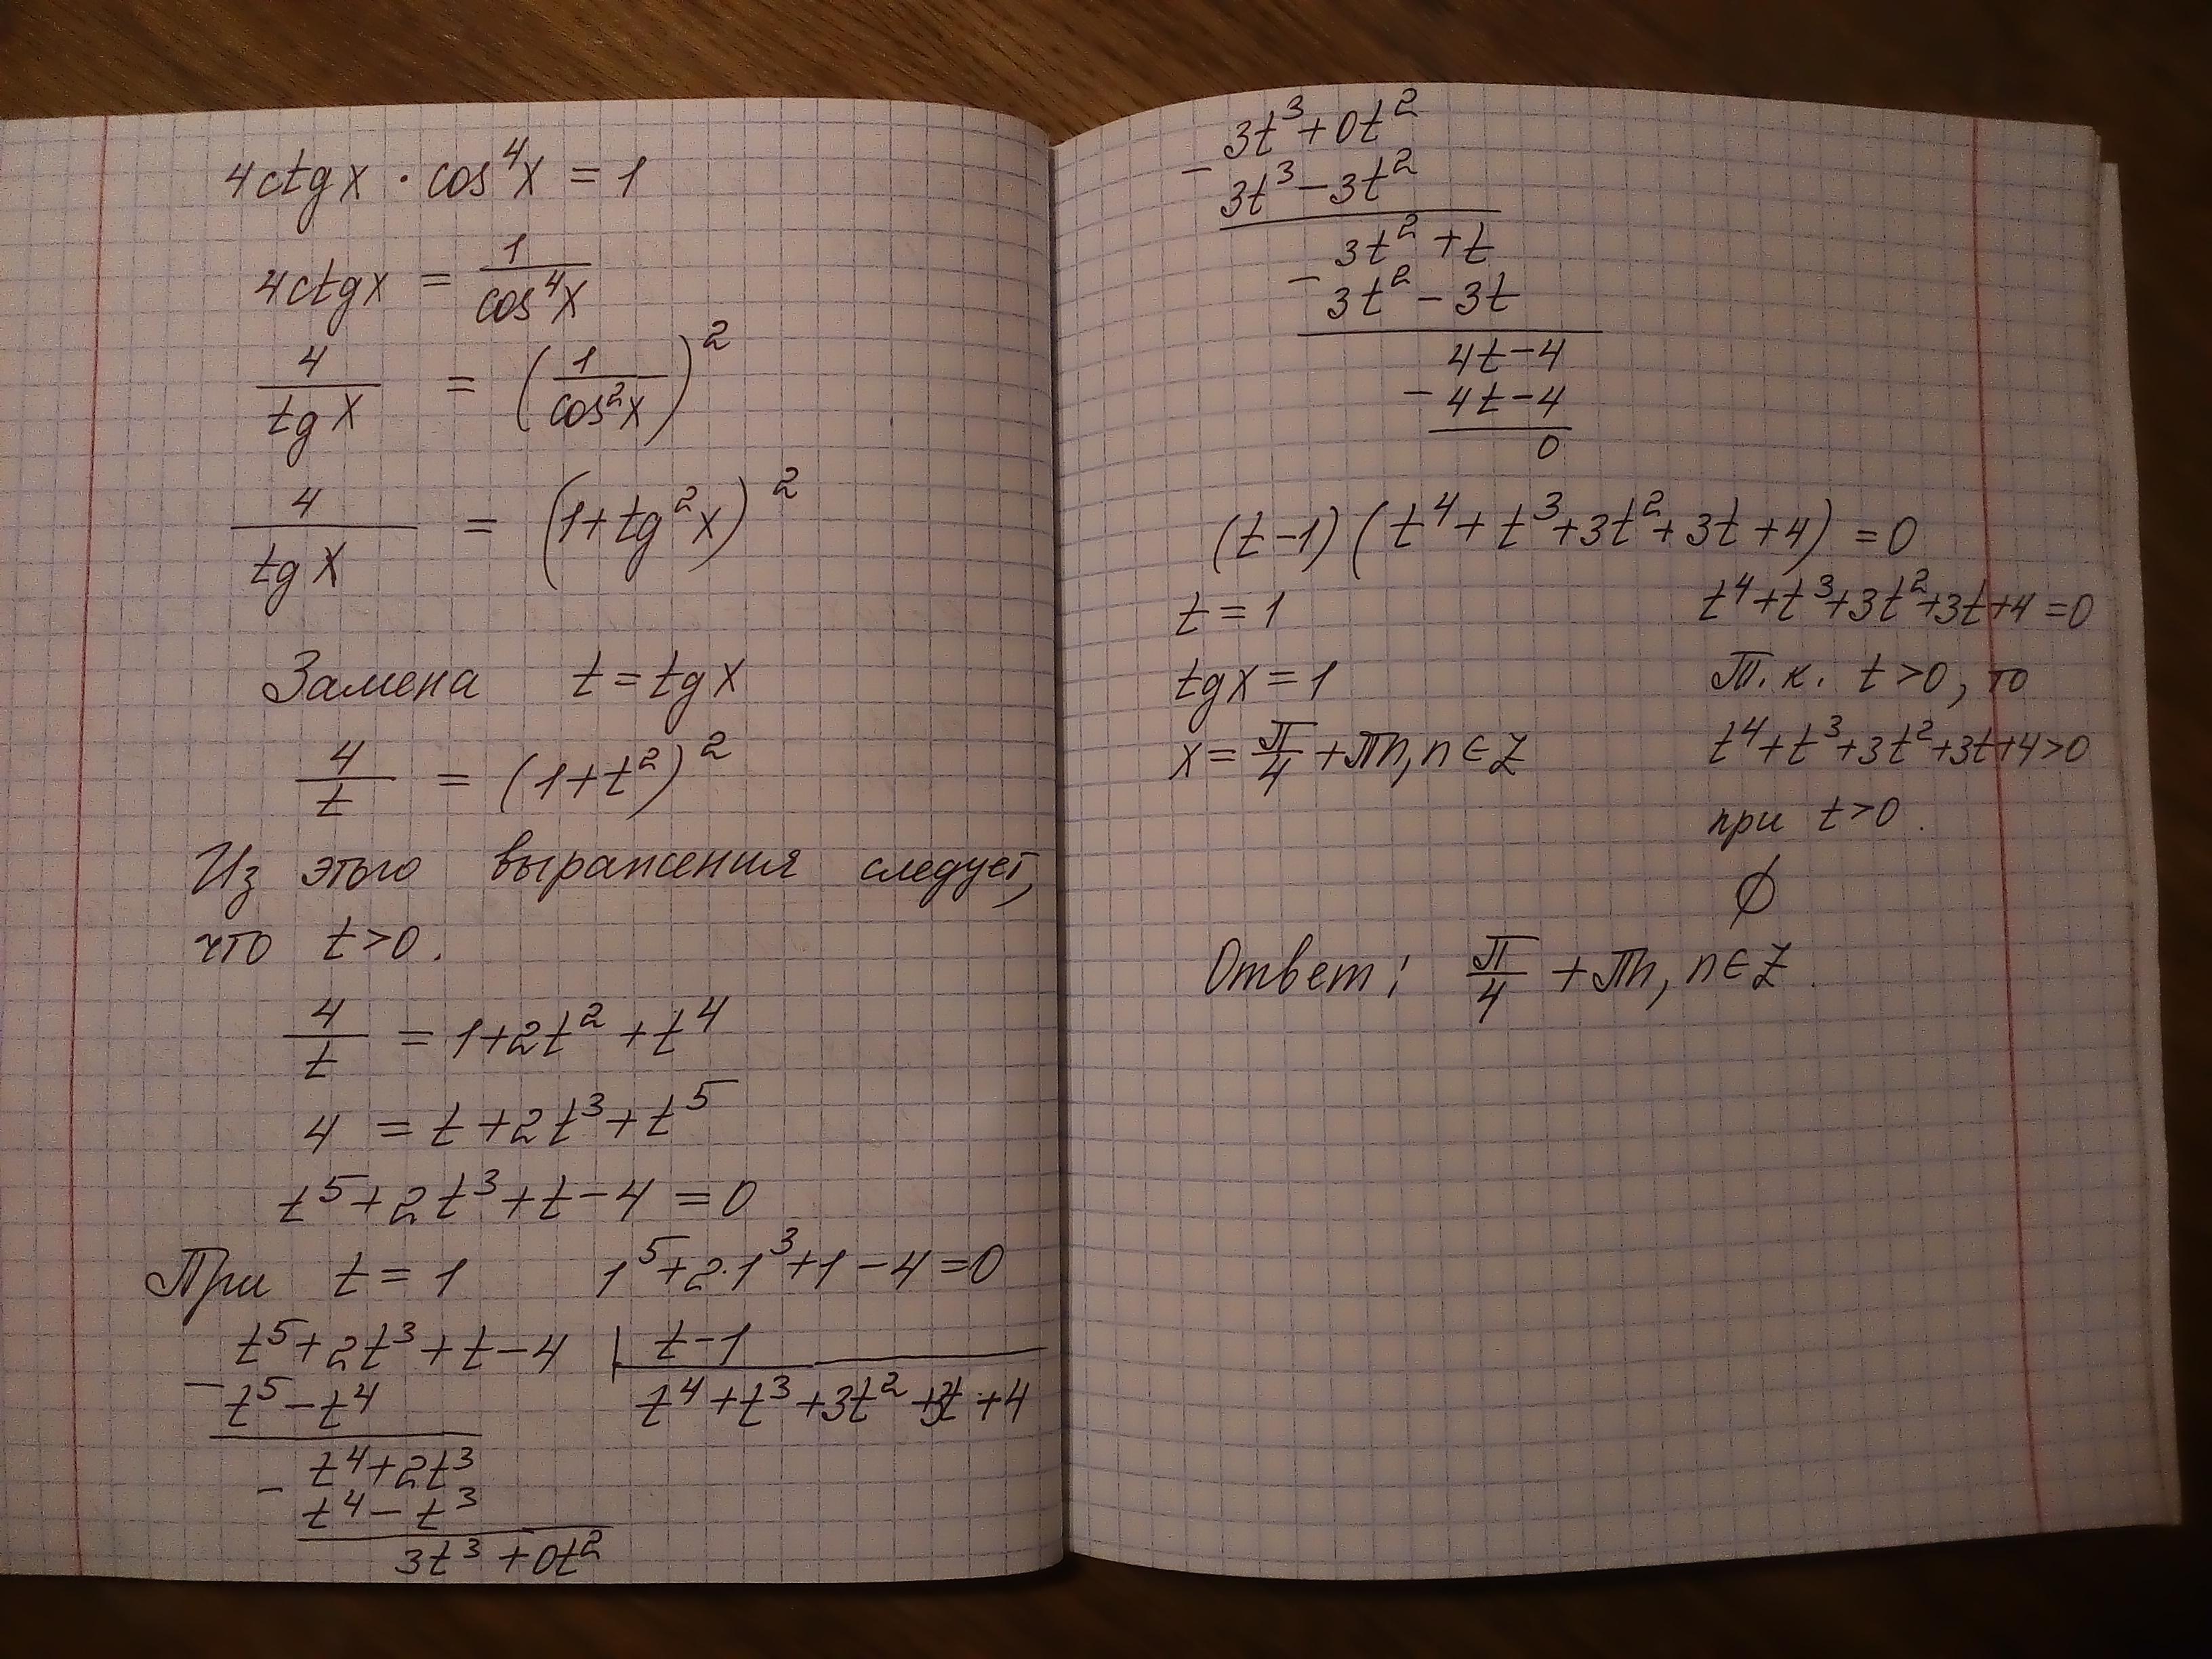 4ctgx · cos⁴x = 1
4ctgx = 1/cos⁴x
4/tgx = (1/cos²x)²
4/tgx = (1+tg²x)²
Замена t = tgx
4/t = (1+t²)²
Из этого выражения следует,
что t>0.
4/t = 1+2t²+t⁴
4 = t+2t³+t⁵
t⁵+2t³+t-4 = 0
При t = 1 1⁵+2·1³+1-4=0
t⁵+2t³+t-4 | t-1
- t⁵-t⁴ t⁴+t³+3t²+3t+4
t⁴+2t³
- t⁴-t³
3t³+0t²
3t³+0t²
- 3t³-3t²
3t²+t
- 3t²-3t
4t-4
- 4t-4
0
(t-1)(t⁴+t³+3t²+3t+4) = 0
t = 1 t⁴+t³+3t²+3t+4=0
tgx = 1 Т.к. t>0, то
x = π/4 + πn, n∈Z t⁴+t³+3t²+3t+4>0
при t>0.
∅
Ответ: π/4 + πn, n∈Z.